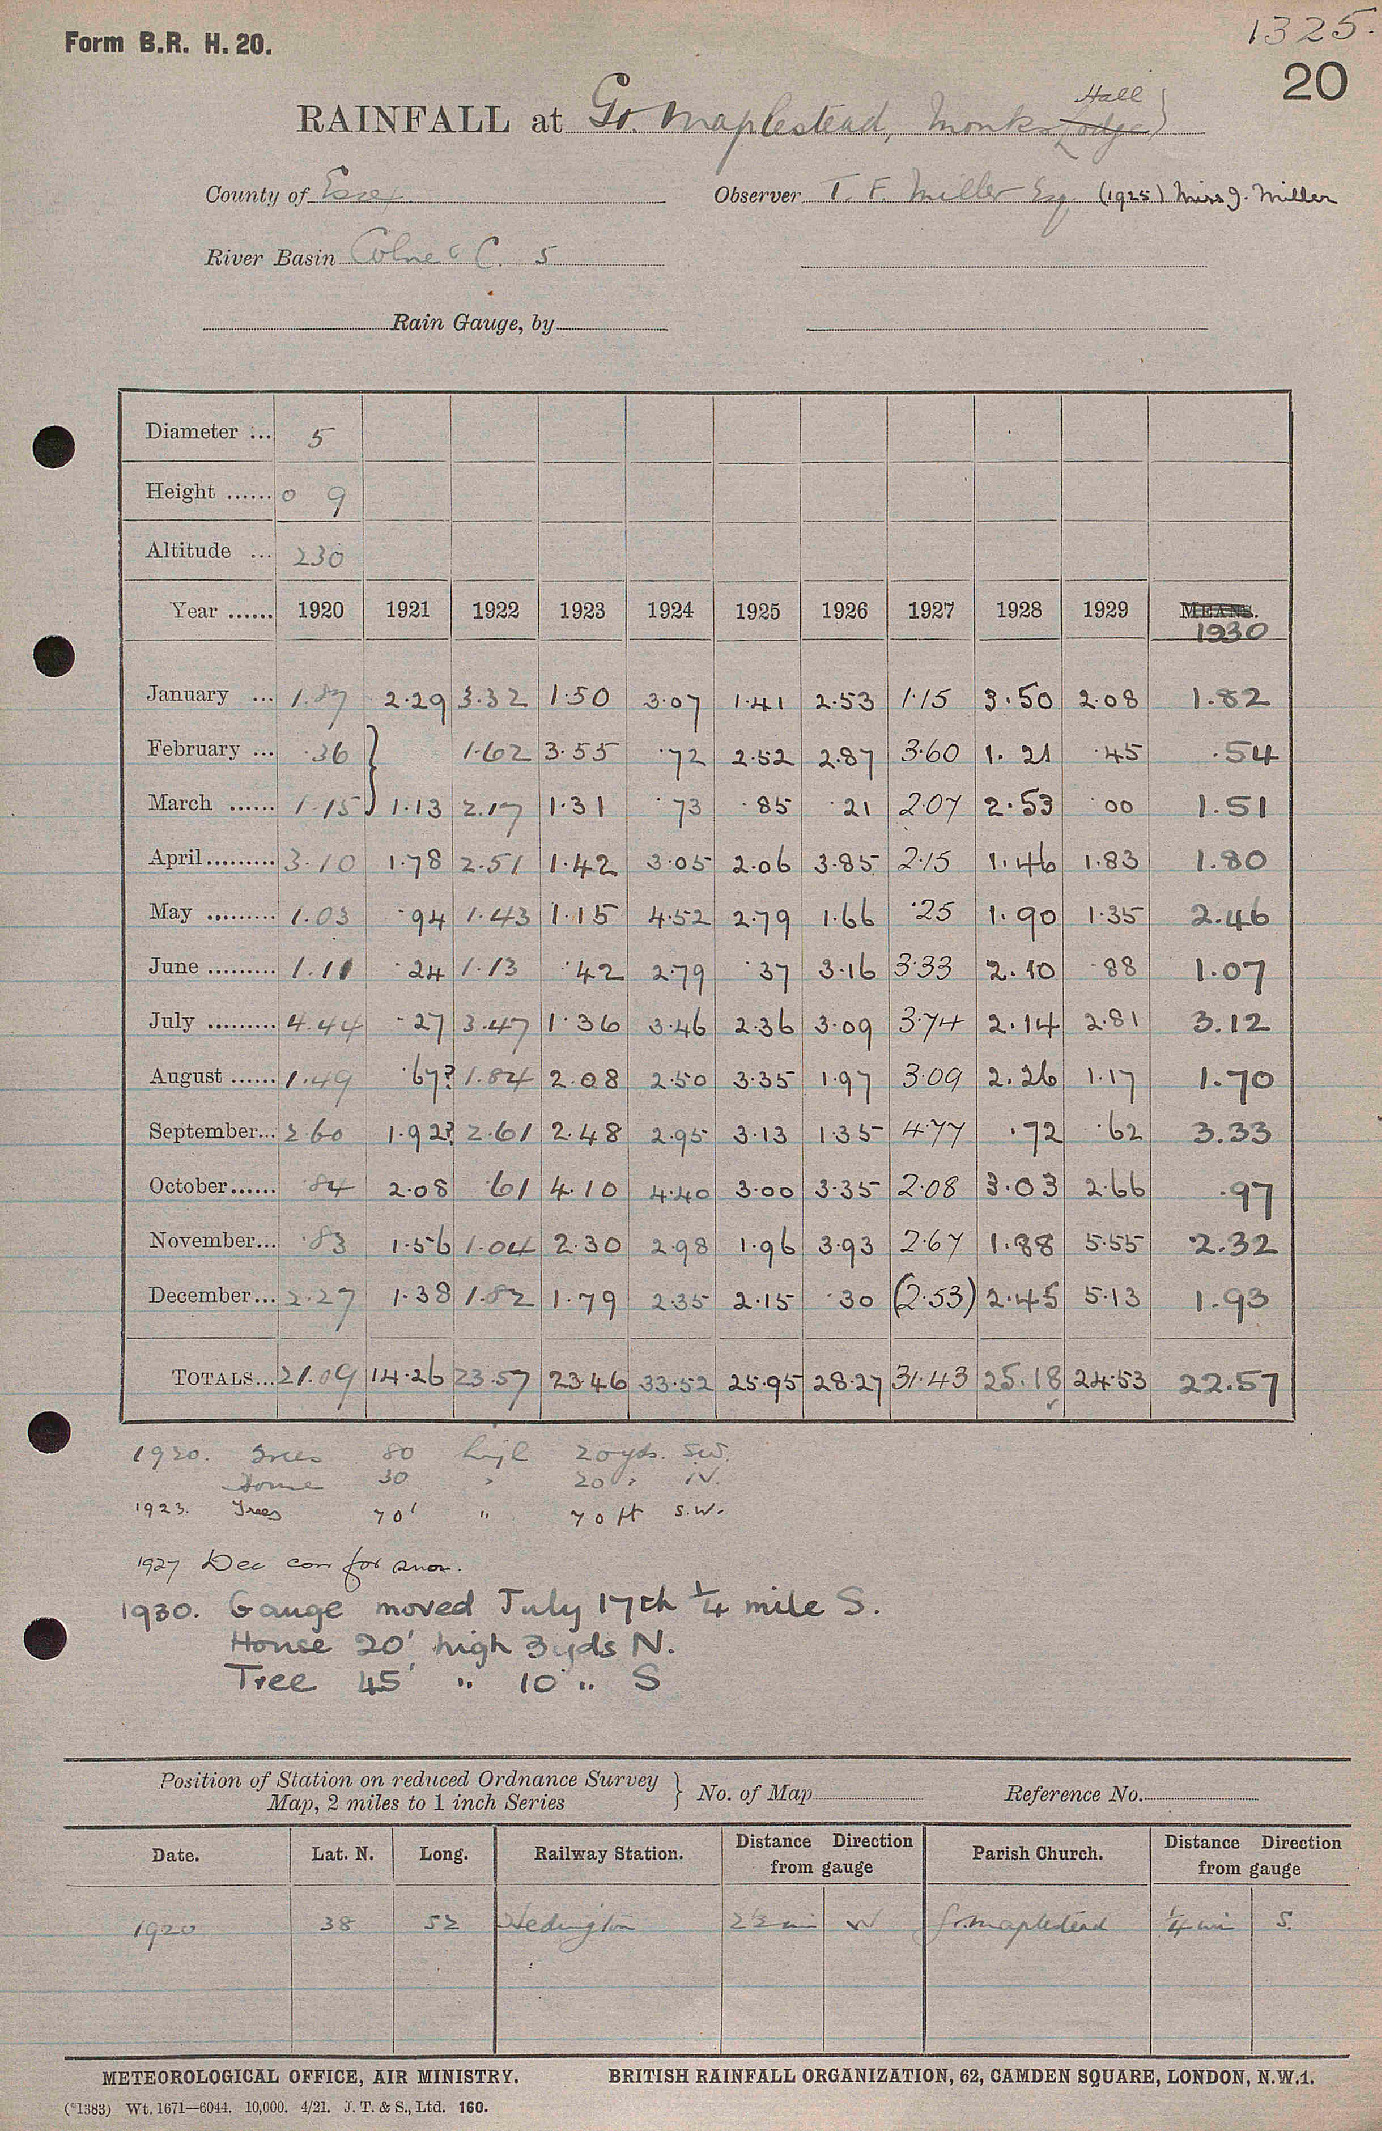 Form B.R. H. 20.
1325.
20
RAINFALL at Gt. Maplestead, Monks Lodge Hall
County of Essex
Observer T. F. Miller Esq (1925) Miss J. Miller
River Basin Colne & C. 5
Rain Gauge, by
Diameter ... 5
Height ...... 0 9
Altitude ... 230
Year ...... 1920 1921 1922 1923 1924 1925 1926 1927 1928 1929 MEANS. 1930
January ... 1.87 2.29 3.32 1.50 3.07 1.41 2.53 1.15 3.50 2.08 1.82
February ... .36 } 1.62 3.55 .72 2.52 2.87 3.60 1.21 .45 .54
March ...... 1.15 1.13 2.17 1.31 .73 .85 .21 2.07 2.53 .00 1.51
April......... 3.10 1.78 2.51 1.42 3.05 2.06 3.85 2.15 1.46 1.83 1.80
May ......... 1.03 .94 1.43 1.15 4.52 2.79 1.66 .25 1.90 1.35 2.46
June ......... 1.11 .24 1.13 .42 2.79 .37 3.16 3.33 2.10 .88 1.07
July ......... 4.44 .27 3.47 1.36 3.46 2.36 3.09 3.74 2.14 2.81 3.12
August ...... 1.49 .67? 1.84 2.08 2.50 3.35 1.97 3.09 2.26 1.17 1.70
September... 2.60 1.92? 2.61 2.48 2.95 3.13 1.35 4.77 .72 .62 3.33
October...... .84 2.08 .61 4.10 4.40 3.00 3.35 2.08 3.03 2.66 .97
November... .83 1.56 1.04 2.30 2.98 1.96 3.93 2.67 1.88 5.55 2.32
December... 2.27 1.38 1.82 1.79 2.35 2.15 .30 (2.53) 2.45 5.13 1.93
TOTALS... 21.09 14.26 23.57 23.46 33.52 25.95 28.27 31.43 25.18 24.53 22.57
1920. Trees 80 high 20 yds. SW.
House 30 " 20 " N.
1923. Trees 70' " 70 ft S.W.
1927 Dec corr for snow.
1930. Gauge moved July 17th 1/4 mile S.
House 20' high 3 yds N.
Tree 45' " 10 " S
Position of Station on reduced Ordnance Survey
Map, 2 miles to 1 inch Series } No. of Map Reference No.
Date. Lat. N. Long. Railway Station. Distance Direction from gauge Parish Church. Distance Direction from gauge
1920 38 52 Hedingham 2½ mi W Gt. Maplestead ¼ mi S.
METEOROLOGICAL OFFICE, AIR MINISTRY. BRITISH RAINFALL ORGANIZATION, 62, CAMDEN SQUARE, LONDON, N.W.1.
(*1383) Wt. 1671—6044. 10,000. 4/21. J. T. & S., Ltd. 160.